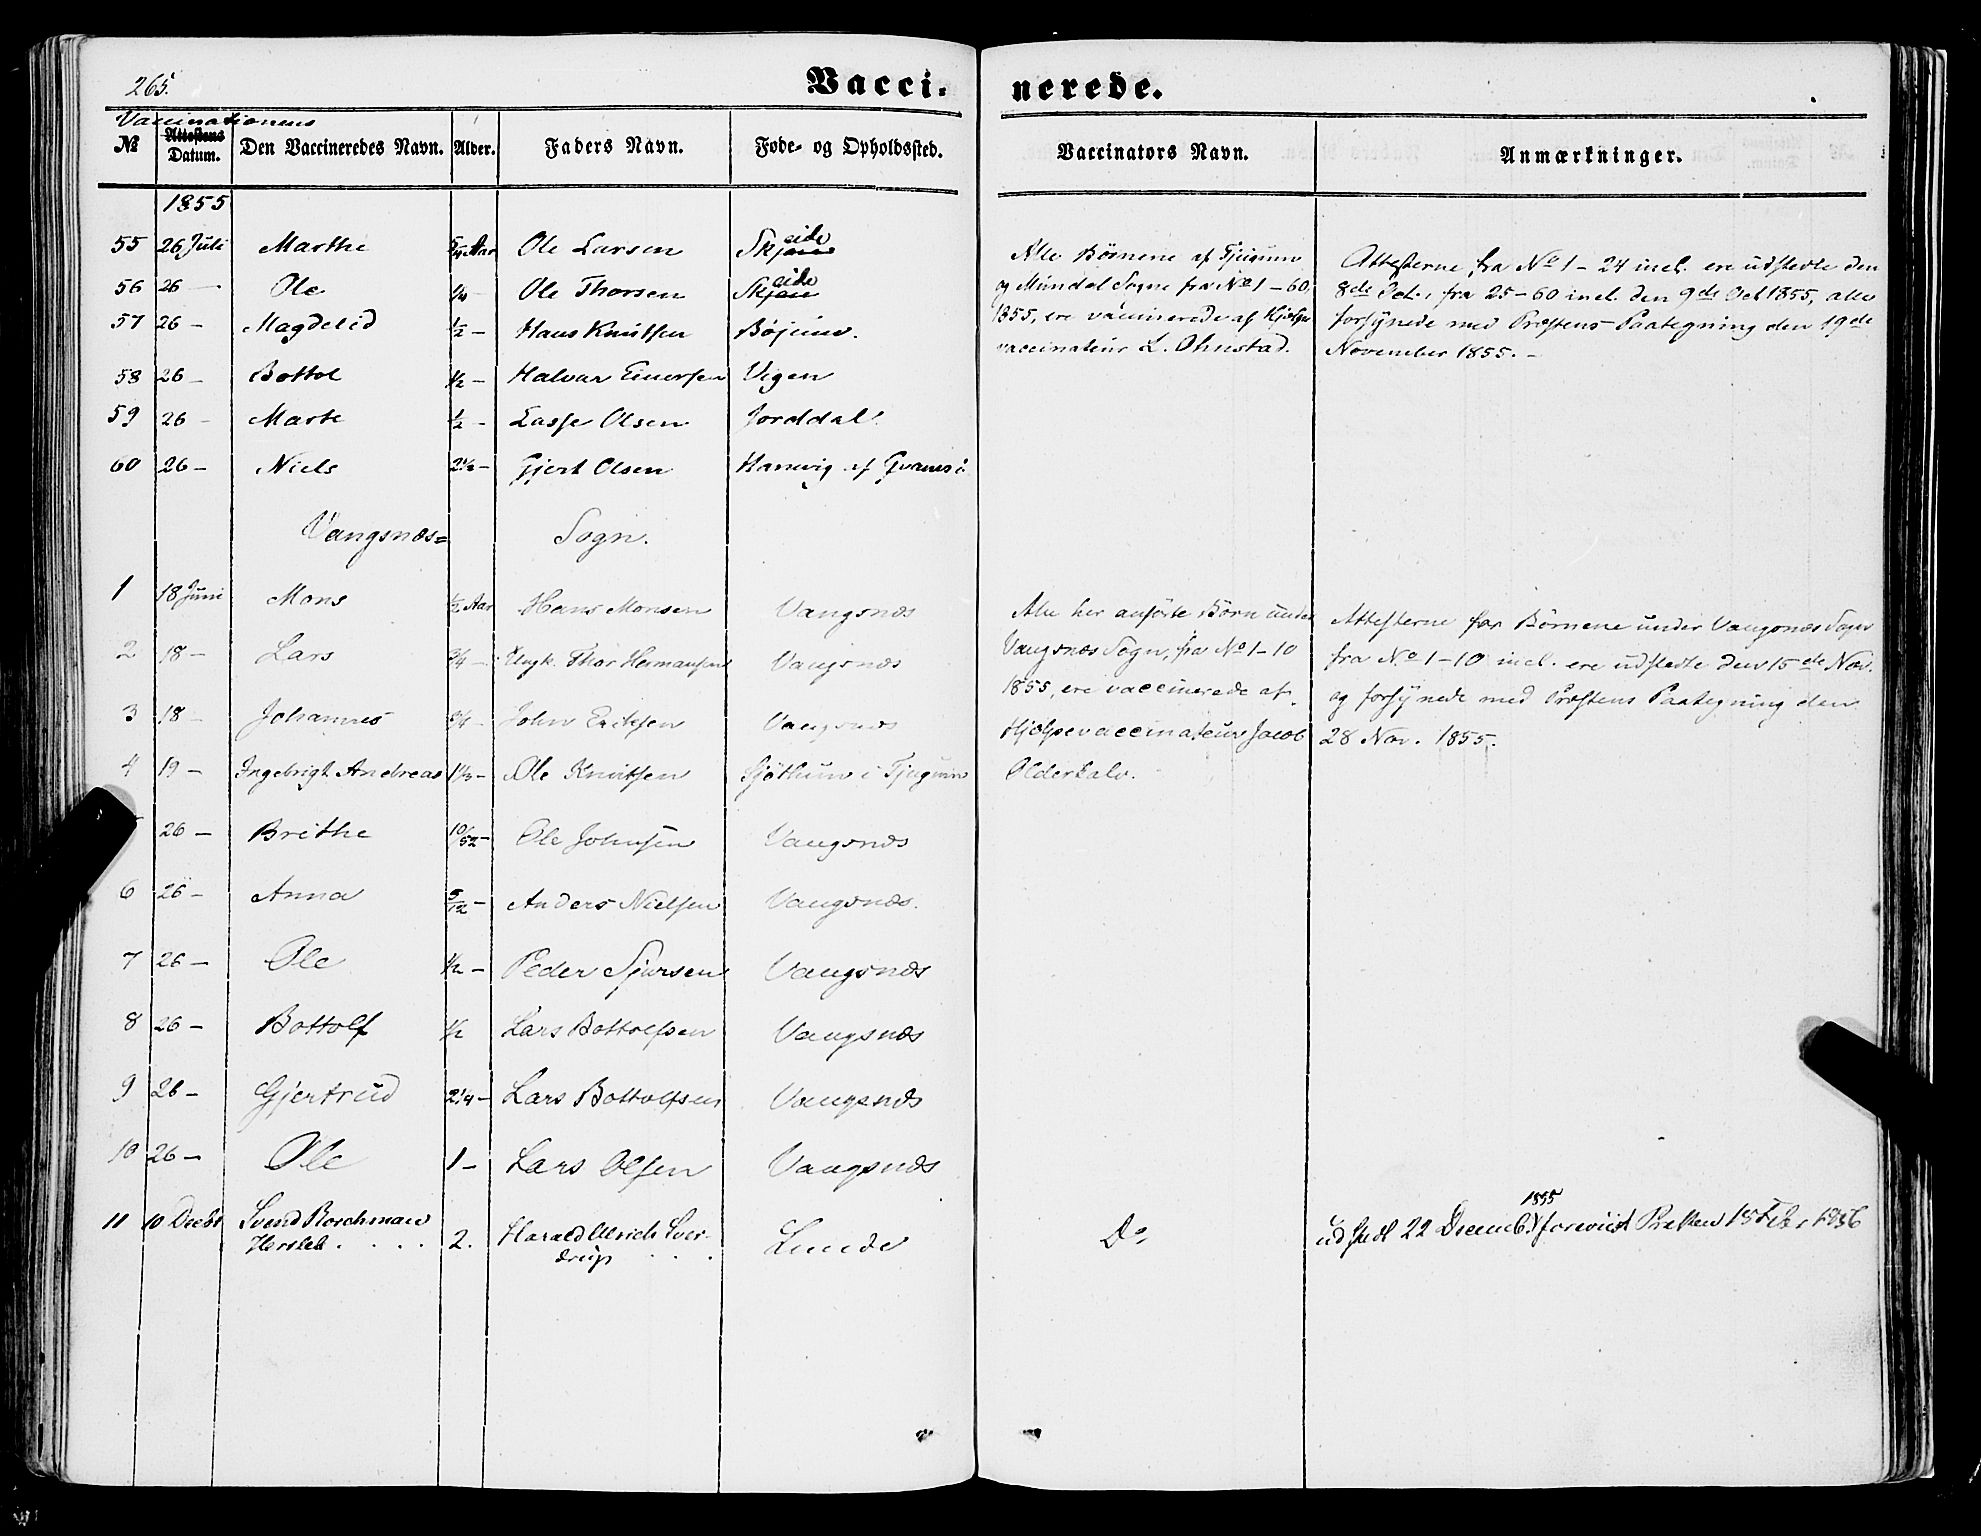 265.
Vacci- nerede.
Vaccinationens
№ Attestens Datum. Den Vaccineredes Navn. Alder. Faders Navn. Føde- og Opholdssted. Vaccinators Navn. Anmærkninger.
1855
55 26 Juli Marthe Aar Ole Larsen Skjeide
56 26 — Ole Ole Thorsen Skjeide
57 26 — Magdelid ½ — Hans Knutsen Bøjum.
58 26 — Bottol ½ — Halvar Vigen
59 26 — Marte ½ — Lasse Olsen Jorddal
60 26 — Niels 2½ — Gjert Olsen Hamvig af
Alle Børnene af Tjugum
og Mundal Sogne fra No 1 – 60
1855, ere vaccinerede af Hjelpe
vaccinateur L. Ohnstad.
Attesterne fra No 1 – 24 incl. ere udstedte den
8de Oct., fra 25 – 60 incl. den 9de Oct 1855, alle
forsynede med Præstens Paategning den 19de
November 1855. –
Vangsnæs= Sogn.
1 18 Juni Mons ½ Aar Hans Monsen Vangsnæs
2 18 — Lars ¾ — Ungk. Thor Hermansen Vangsnæs
3 18 — Johannes ¾ — John Eriksen Vangsnæs
4 19 — Ingebrigt Andreas 1⅓ — Ole Knutsen i Tjugum
26 — Brithe 10/52 — Ole Johnsen Vangsnæs
6 26 — Anna 5/12 — Anders Nielsen Vangsnæs.
7 26 — Ole ½ — Peder Sjursen Vangsnæs
8 26 — Bottolf ½ Lars Bottolfsen Vangsnæs
9 26 — Gjertrud 2¼ — Lars Bottolfsen Vangsnæs
10 26 — Ole 1 — Lars Olsen Vangsnæs
Alle her anførte Børn under
Vangsnæs Sogn, fra No 1 – 10
1855, ere vaccinerede af
Hjelpevaccinateur Jacob
Olderkalv.
Attesterne for Børnene under Vangsnæs Sogn
fra No 1 – 10 incl. ere udstedte den 15de Nov.
og forsynede med Præstens Paategning den
28 Nov. 1855.
11 10 Decbr Svend Borchman
Hersleb . . . . 2. Harald Ulrich Sver-
drup . . . Lunde Do 1855
udstedt 22 Decemb. foreviist Præsten 15 Febr 1856